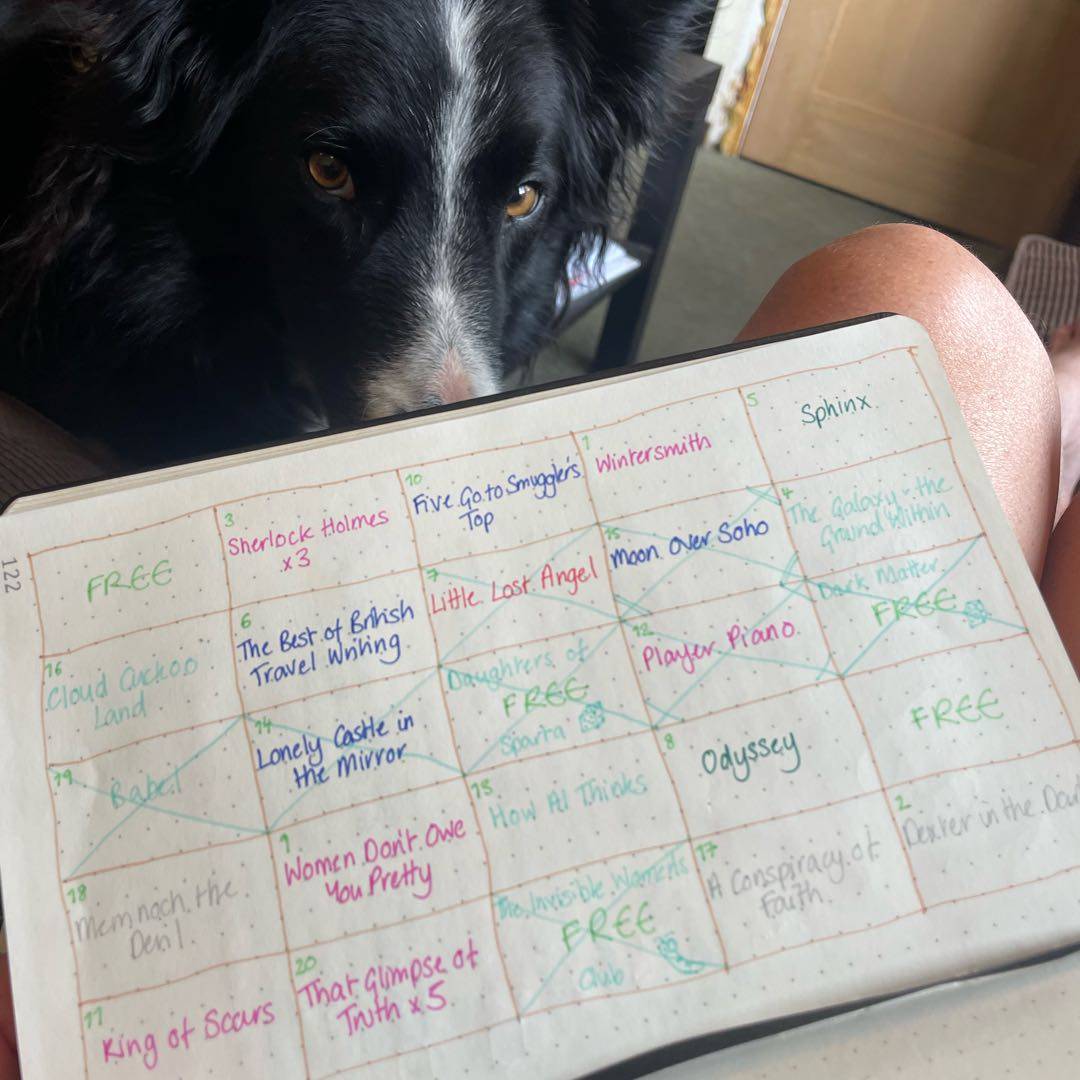 122
FREE
3
Sherlock Holmes
x3
10
Five Go to Smuggler's
Top
1
Wintersmith
5
Sphinx
16
Cloud Cuckoo
Land
6
The Best of British
Travel Writing
7
Little Lost Angel
15
Moon Over Soho
4
The Galaxy + the
Ground Within
19
Babel
14
Lonely Castle in
the Mirror
Daughters of
FREE
Sparta
12
Player Piano
Dark Matter
FREE
18
Memnoch the
Devil
9
Women Don't Owe
You Pretty
13
How AI Thinks
8
Odyssey
FREE
11
King of Scars
20
That Glimpse of
Truth x5
The Invisible Women's
FREE
Club
17
A Conspiracy of
Faith
2
Dexter in the